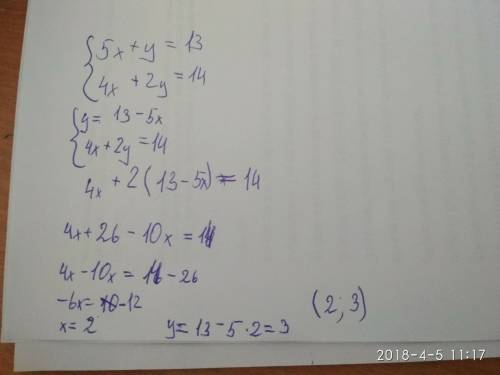 {5x + y = 13
{4x + 2y = 14
{y = 13 - 5x
{4x + 2y = 14
4x + 2(13 - 5x) = 14
4x + 26 - 10x = 14
4x - 10x = 14 - 26
-6x = -12
x = 2 y = 13 - 5 · 2 = 3
(2; 3)
2018-4-5 11:17